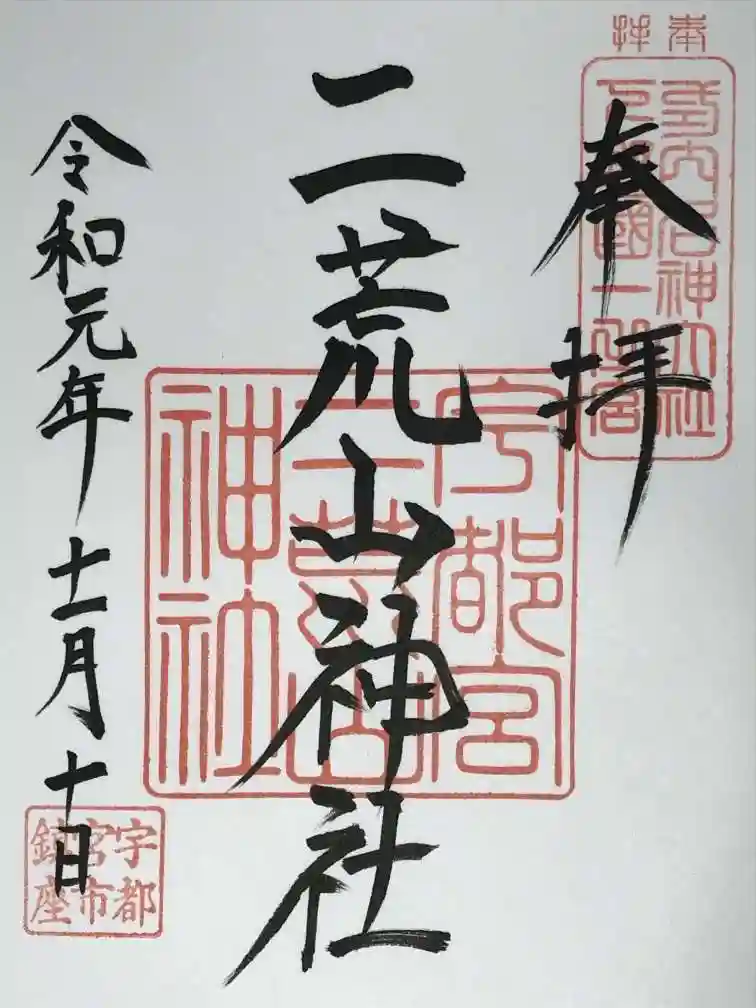 奉拝
奉拝
式内名神大社
下野國一之宮
二荒山神社
宇都宮
二荒山
神社
令和元年十一月十日
宇都
宮市
鎮座